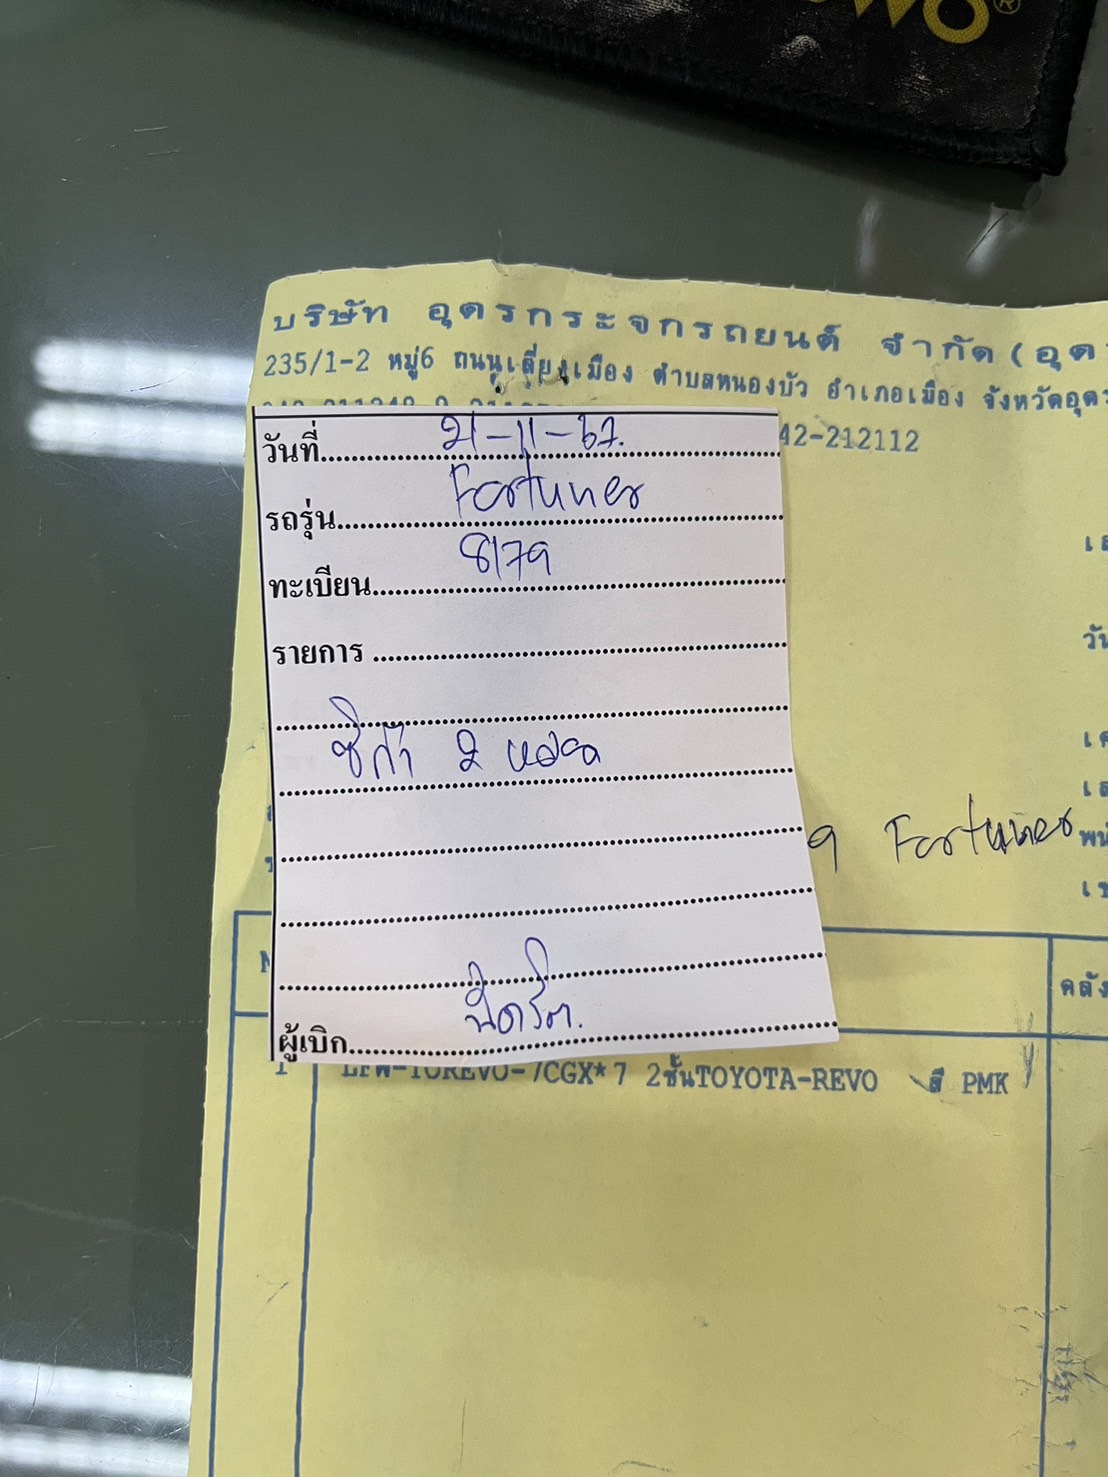 บริษัท อุดรกระจกรถยนต์ จำกัด(อุด
235/1-2 หมู่6 ถนนเลี่ยงเมือง ตำบลหนองบัว อำเภอเมือง จังหวัดอุดร
42-212112
วันที่ 21-11-67.
รถรุ่น Fortuner
ทะเบียน 8179
รายการ
ซิก้า 2 หลอด
9 Fortuner
คลัง
ผู้เบิก
1 LFW-TOREVO-7CGX*7 2ชั้นTOYOTA-REVO สี PMK